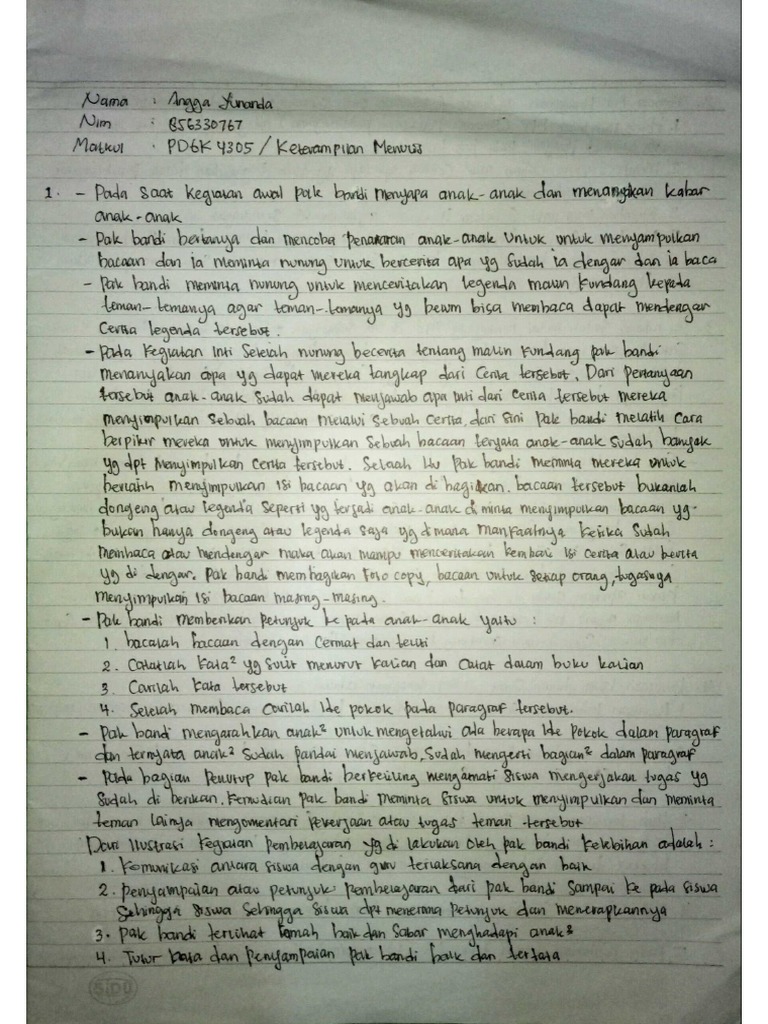 Nama : Angga Yunanda
Nim : 856330767
Matkul : PDGK 4305 / Keterampilan Menulis
1. - Pada saat kegiatan awal pak bandi menyapa anak-anak dan menanyakan kabar
anak-anak
- Pak bandi bertanya dan mencoba penalaran anak-anak untuk untuk menyampulkan
bacaan dan ia meminta nunung untuk bercerita apa yg sudah ia dengar dan ia baca
- Pak bandi meminta nunung untuk menceritakan legenda malin kundang kepada
teman-temanya agar teman-temanya yg belum bisa membaca dapat mendengar
cerita legenda tersebut.
- Pada kegiatan inti setelah nunung becerita tentang malin kundang pak bandi
menanyakan apa yg dapat mereka tangkap dari cerita tersebut. Dari pertanyaan
tersebut anak-anak sudah dapat menjawab apa inti dari cerita tersebut mereka
menyimpulkan sebuah bacaan melalui sebuah cerita, dari sini pak bandi melatih cara
berpikir mereka untuk menyimpulkan sebuah bacaan ternyata anak-anak sudah banyak
yg dpt menyimpulkan cerita tersebut. Setelah itu pak bandi meminta mereka untuk
berlatih menyimpulkan isi bacaan yg akan di bagikan. bacaan tersebut bukanlah
dongeng atau legenda seperti yg terjadi anak-anak di minta menyimpulkan bacaan yg
bukan hanya dongeng atau legenda saja yg dimana manfaatnya ketika sudah
membaca atau mendengar maka akan mampu menceritakan kembali isi cerita atau berita
yg di dengar. Pak bandi membagikan foto copy, bacaan untuk setiap orang, tugasnya
menyimpulkan isi bacaan masing-masing.
- Pak bandi memberikan petunjuk ke pada anak-anak yaitu :
1. bacalah bacaan dengan cermat dan teliti
2. Catatlah kata² yg sulit menurut kalian dan catat dalam buku kalian
3. Carilah kata tersebut
4. Setelah membaca carilah ide pokok pada paragraf tersebut.
- Pak bandi mengarahkan anak² untuk mengetahui ada berapa ide pokok dalam paragraf
dan ternyata anak² sudah pandai menjawab, sudah mengerti bagian² dalam paragraf
- Pada bagian penutup pak bandi berkeliling mengamati siswa mengerjakan tugas yg
sudah di berikan. Kemudian pak bandi meminta siswa untuk menyimpulkan dan meminta
teman lainya mengomentari pekerjaan atau tugas teman tersebut
Dari ilustrasi kegiatan pembelajaran yg di lakukan oleh pak bandi kelebihan adalah :
1. Komunikasi antara siswa dengan guru terlaksana dengan baik
2. penyampaian atau petunjuk pembelajaran dari pak bandi sampai ke pada siswa
sehingga siswa sehingga siswa dpt menerima petunjuk dan menerapkannya
3. pak bandi terlihat ramah baik dan sabar menghadapi anak²
4. Tutur kata dan penyampaian pak bandi baik dan tertata
SIDU